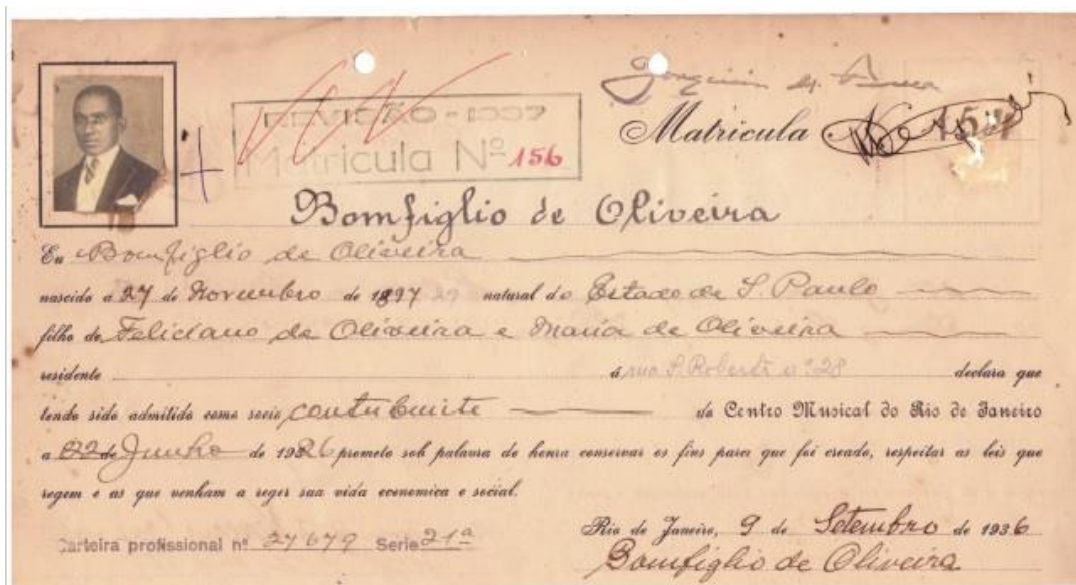 REVISÃO - 1937
Matricula Nº 156
Matricula
Bomfiglio de Oliveira
Eu Bomfiglio de Oliveira
nascido a 27 de Novembro de 1897 natural do Estado de S. Paulo
filho de Feliciano de Oliveira e Maria de Oliveira
residente á rua S. Roberto nº 28 declara que
tendo sido admitido como socio contribuinte do Centro Musical do Rio de Janeiro
a 22 de Junho de 1926 prometo sob palavra de honra conservar os fins para que foi creado, respeitar as leis que
regem e as que venham a reger sua vida economica e social.
Rio de Janeiro, 9 de Setembro de 1936
Carteira profissional nº 27679 Serie 21ª
Bomfiglio de Oliveira